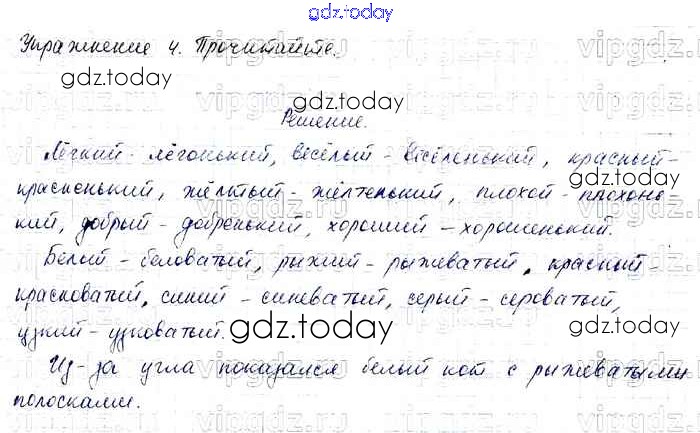 gdz.today
Упражнение 4. Прочитайте.
gdz.today
gdz.today
Решение.
Лёгкий - лёгонький, весёлый - весёленький, красный -
gdz.today
красненький, жёлтый - жёлтенький, плохой - плохонь
кий, добрый - добренький, хороший - хорошенький.
Белый - беловатый, рыжий - рыжеватый, красный -
красноватый, синий - синеватый, серый - сероватый,
gdz.today
gdz.today
узкий - узковатый.
Из-за угла показался белый кот с рыжеватыми
полосками.
gdz.today